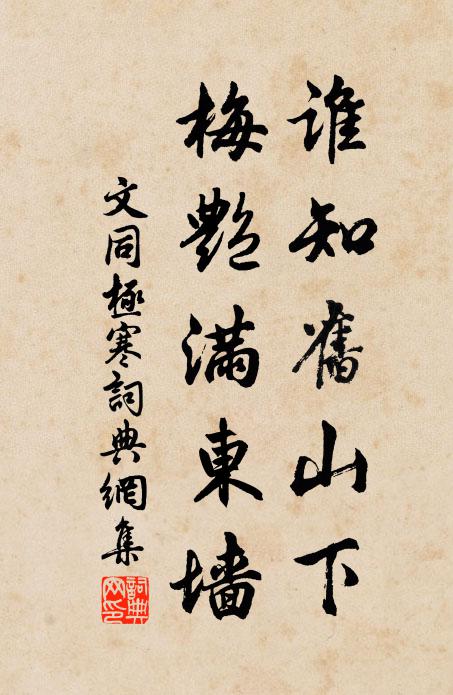 誰知舊山下
梅艷滿東墻
文同極寒詞典網集
詞典
网印